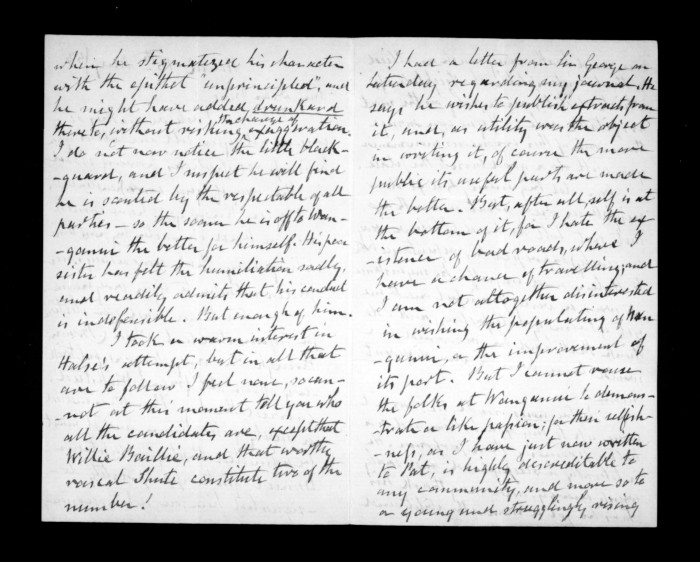 when he stigmatized his character
with the epithet "unprincipled", and
he might have added drunkard
thereto, without risking the charge of exaggeration.
I do not now notice the little black-
-guard, and I suspect he will find
he is scouted by the respectable of all
parties – so the sooner he is off to Wan-
-ganui the better for himself. His poor
sister has felt the humiliation sadly,
and readily admits that his conduct
is indefensible. But enough of him.
I took a warm interest in
Halse's attempt, but in all that
are to follow I feel none, so can-
-not at this moment tell you who
all the candidates are, except that
Willie Baillie, and that worthy
rascal Shute constitute two of the
number!
I had a letter from Sir George on
Saturday regarding my journal. He
says he wishes to publish extracts from
it, and, as utility was the object
in writing it, of course the more
public its useful parts are made
the better. But, after all, self is at
the bottom of it, for I hate the ex-
-istence of bad roads, where I
have a chance of travelling; and
I am not altogether disinterested
in wishing the populating of Wan-
-ganui, or the improvement of
its port. But I cannot rouse
the folks at Wanganui to demons-
-trate a like passion; for their selfish-
-ness, as I have just now written
to Pat, is highly discreditable to
any community, and more so to
a young and strugglingly rising